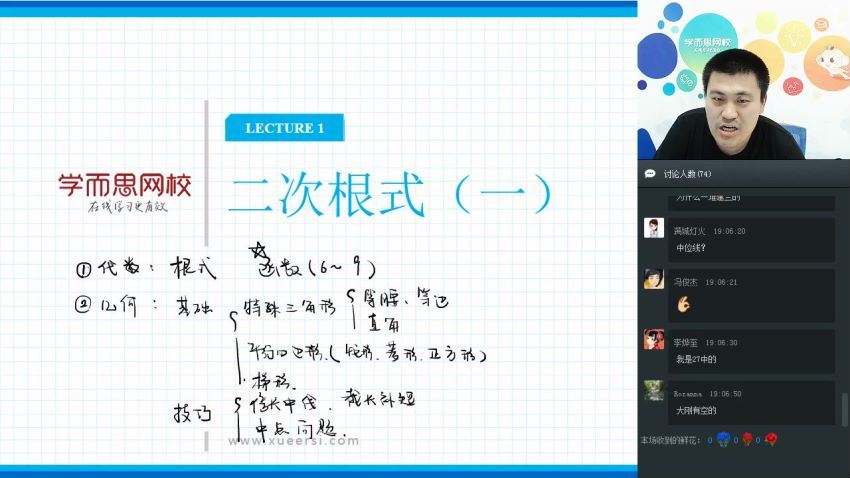 LECTURE 1
学而思网校
在线学习更有效
二次根式（一）
① 代数：根式 ☆函数(6~9)
② 几何：基础 特殊三角形 等腰、等边
直角
平行四边形.(矩形.菱形.正方形)
梯形.
技巧 倍长中线. 截长补短
中点问题.
www.xueersi.com
学而思网校
讨论人数(74)
为什么一堆崔三的
满城灯火 19:06:20
中位线?
冯俊杰 19:06:21
李烨至 19:06:30
我是27中的
Roranna 19:06:50
大刚有空的
本场收到的鲜花： 0 0 0